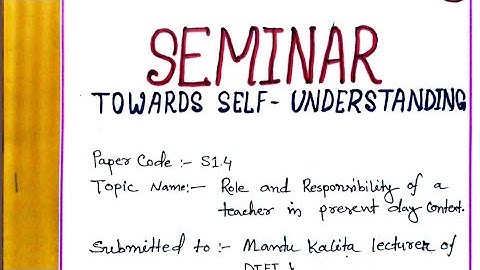 SEMINAR
TOWARDS SELF-UNDERSTANDING
Paper Code :- S1.4
Topic Name:- Role and Responsibility of a
teacher in present day Context.
Submitted to :- Mandu Kalita lecturer of
DIET